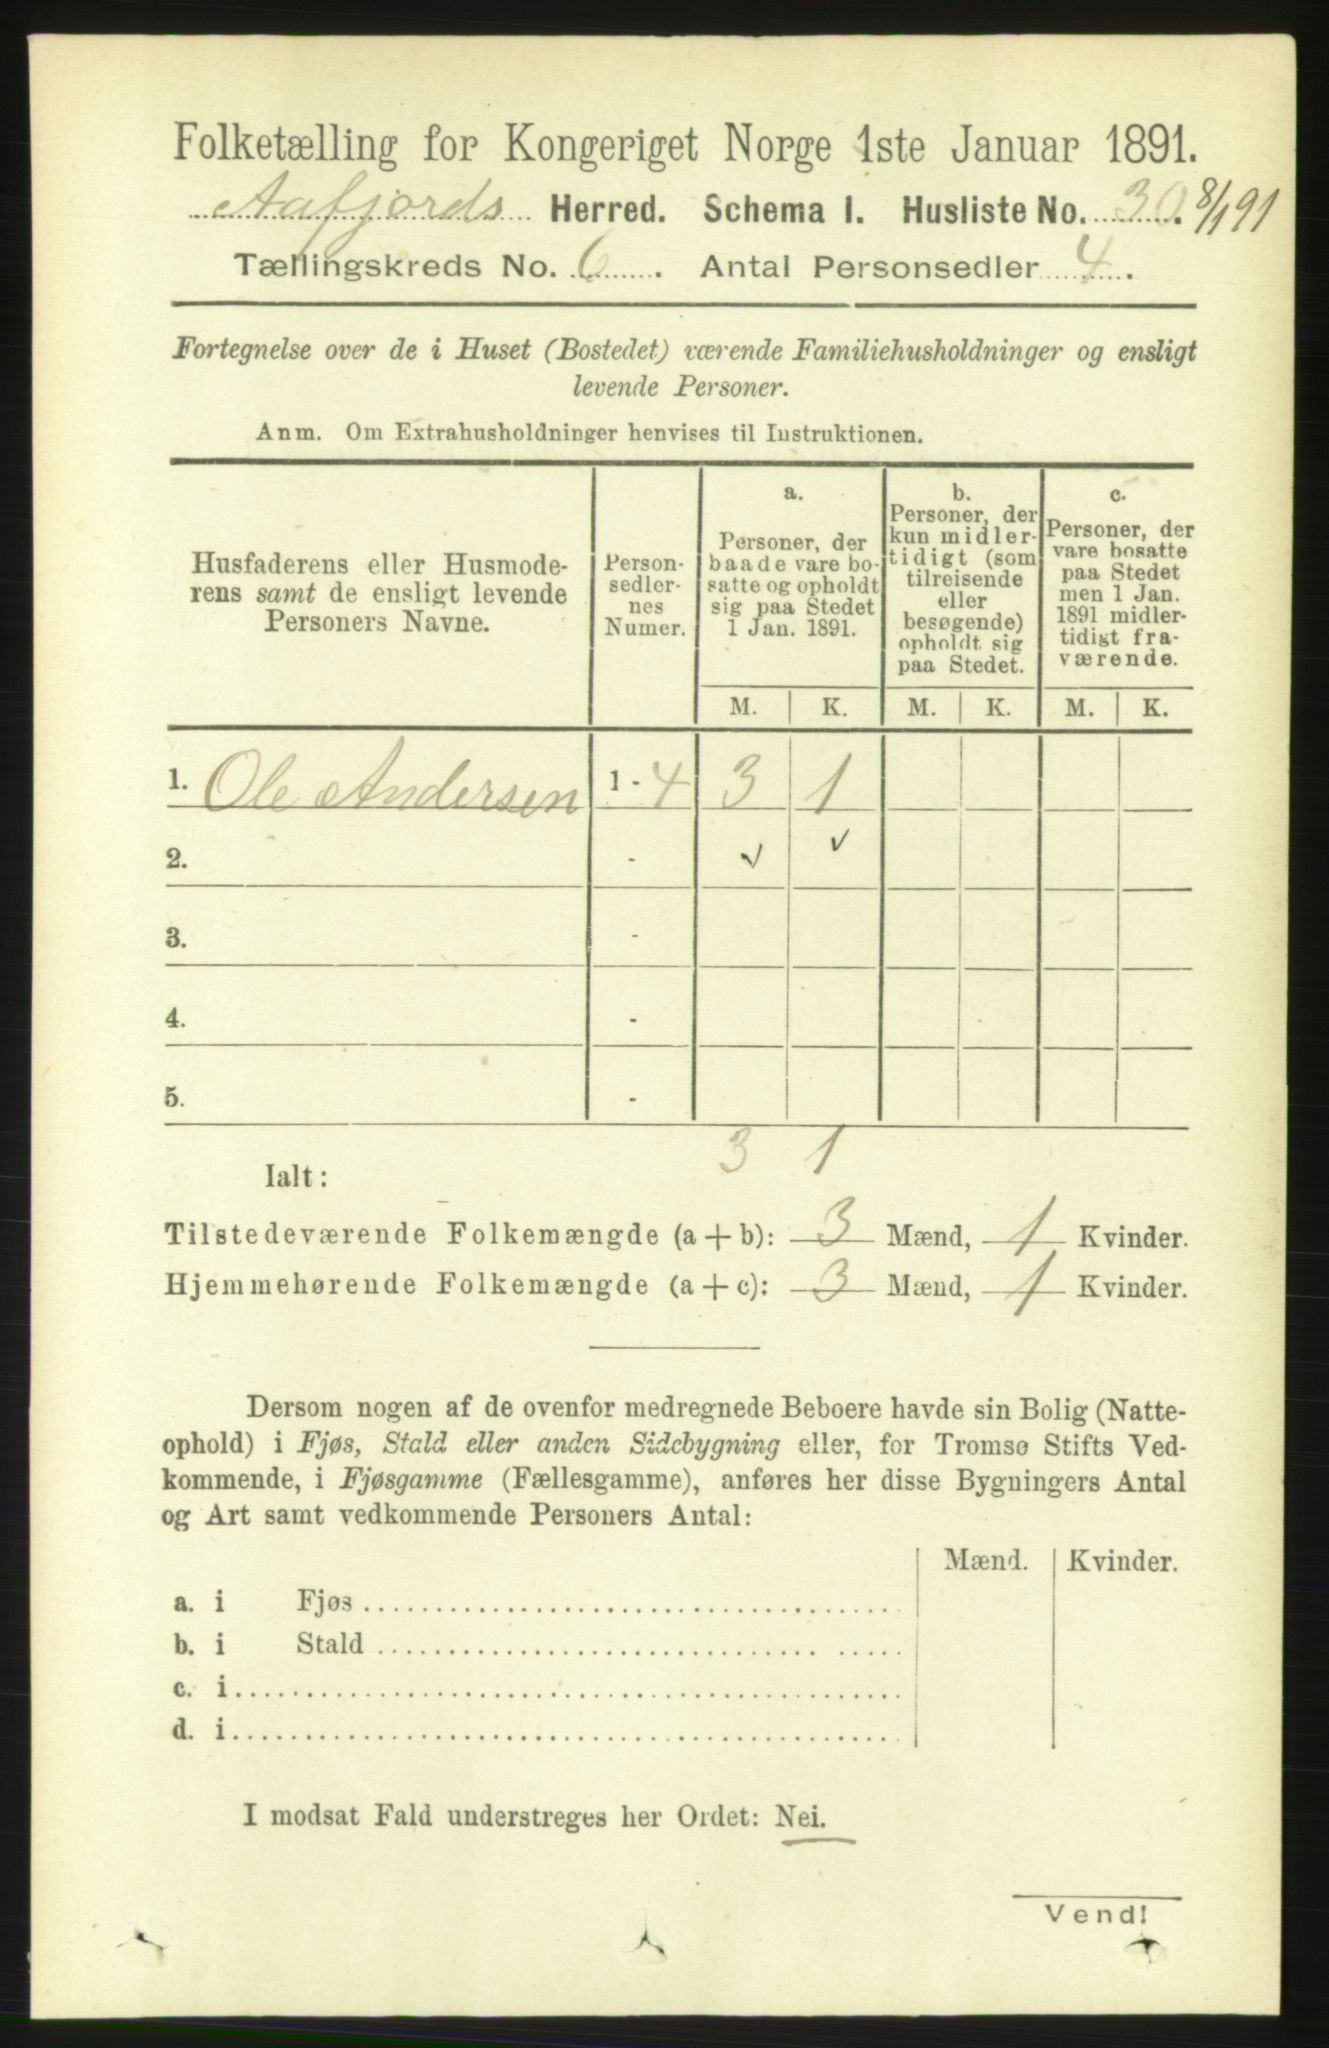 Folketælling for Kongeriget Norge 1ste Januar 1891.
Aafjords Herred. Schema I. Husliste No. 30. 8/1 91
Tællingskreds No. 6. Antal Personsedler 4.
Fortegnelse over de i Huset (Bostedet) værende Familiehusholdninger og ensligt
levende Personer.
Anm. Om Extrahusholdninger henvises til Instruktionen.
Husfaderens eller Husmode-
rens samt de ensligt levende
Personers Navne.
Person-
sedler-
nes
Numer.
a.
Personer, der
baade vare bo-
satte og opholdt
sig paa Stedet
1 Jan. 1891.
b.
Personer, der
kun midler-
tidigt (som
tilreisende
eller
besøgende)
opholdt sig
paa Stedet.
c.
Personer, der
vare bosatte
paa Stedet
men 1 Jan.
1891 midler-
tidigt fra-
værende.
M. K. M. K. M. K.
1. Ole Andersen 1 - 4 3 1
2. - ✓ ✓
3. -
4. -
5. -
3 1
Ialt:
Tilstedeværende Folkemængde (a + b): 3 Mænd, 1 Kvinder.
Hjemmehørende Folkemængde (a + c): 3 Mænd, 1 Kvinder.
Dersom nogen af de ovenfor medregnede Beboere havde sin Bolig (Natte-
ophold) i Fjøs, Stald eller anden Sidebygning eller, for Tromsø Stifts Ved-
kommende, i Fjøsgamme (Fællesgamme), anføres her disse Bygningers Antal
og Art samt vedkommende Personers Antal:
Mænd. Kvinder.
a. i Fjøs
b. i Stald
c. i
d. i
I modsat Fald understreges her Ordet: Nei.
Vend!